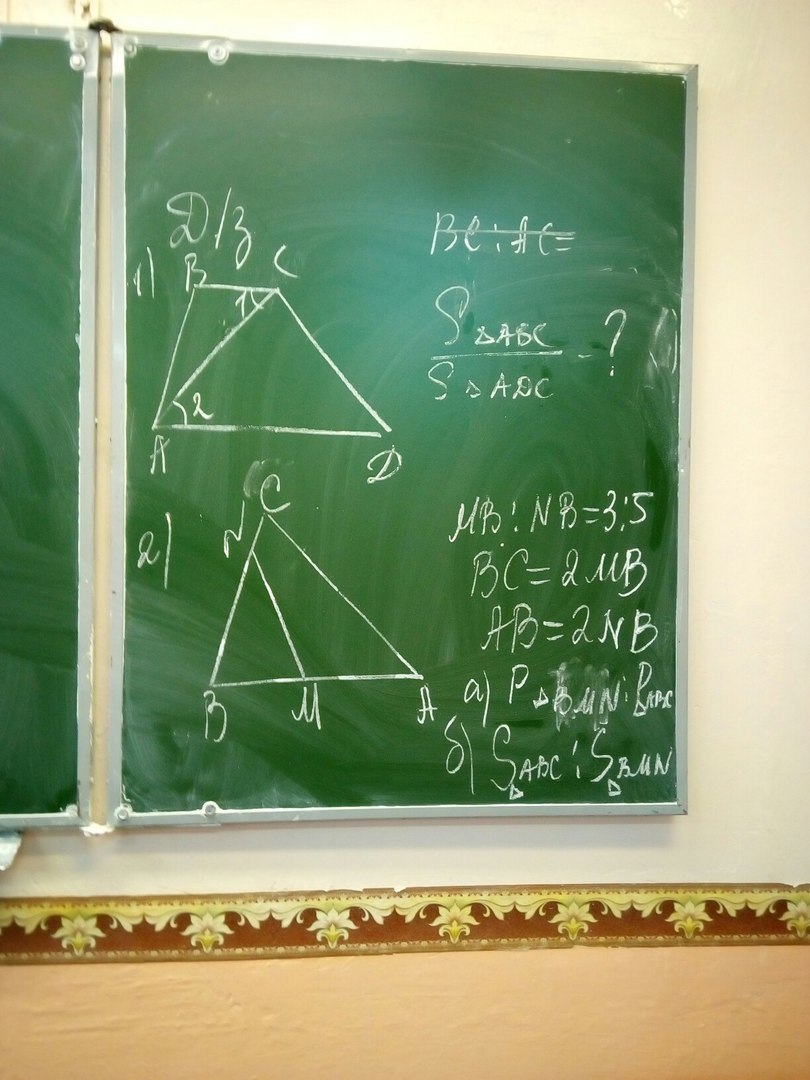 Д/з
1)
B C
1
2
A D
BC : AC =
S△ABC
S△ADC
- ?
2)
C
N
B M A
MB : NB = 3 : 5
BC = 2MB
AB = 2NB
а) P△BMN : PABC
б) S△ABC : S△BMN